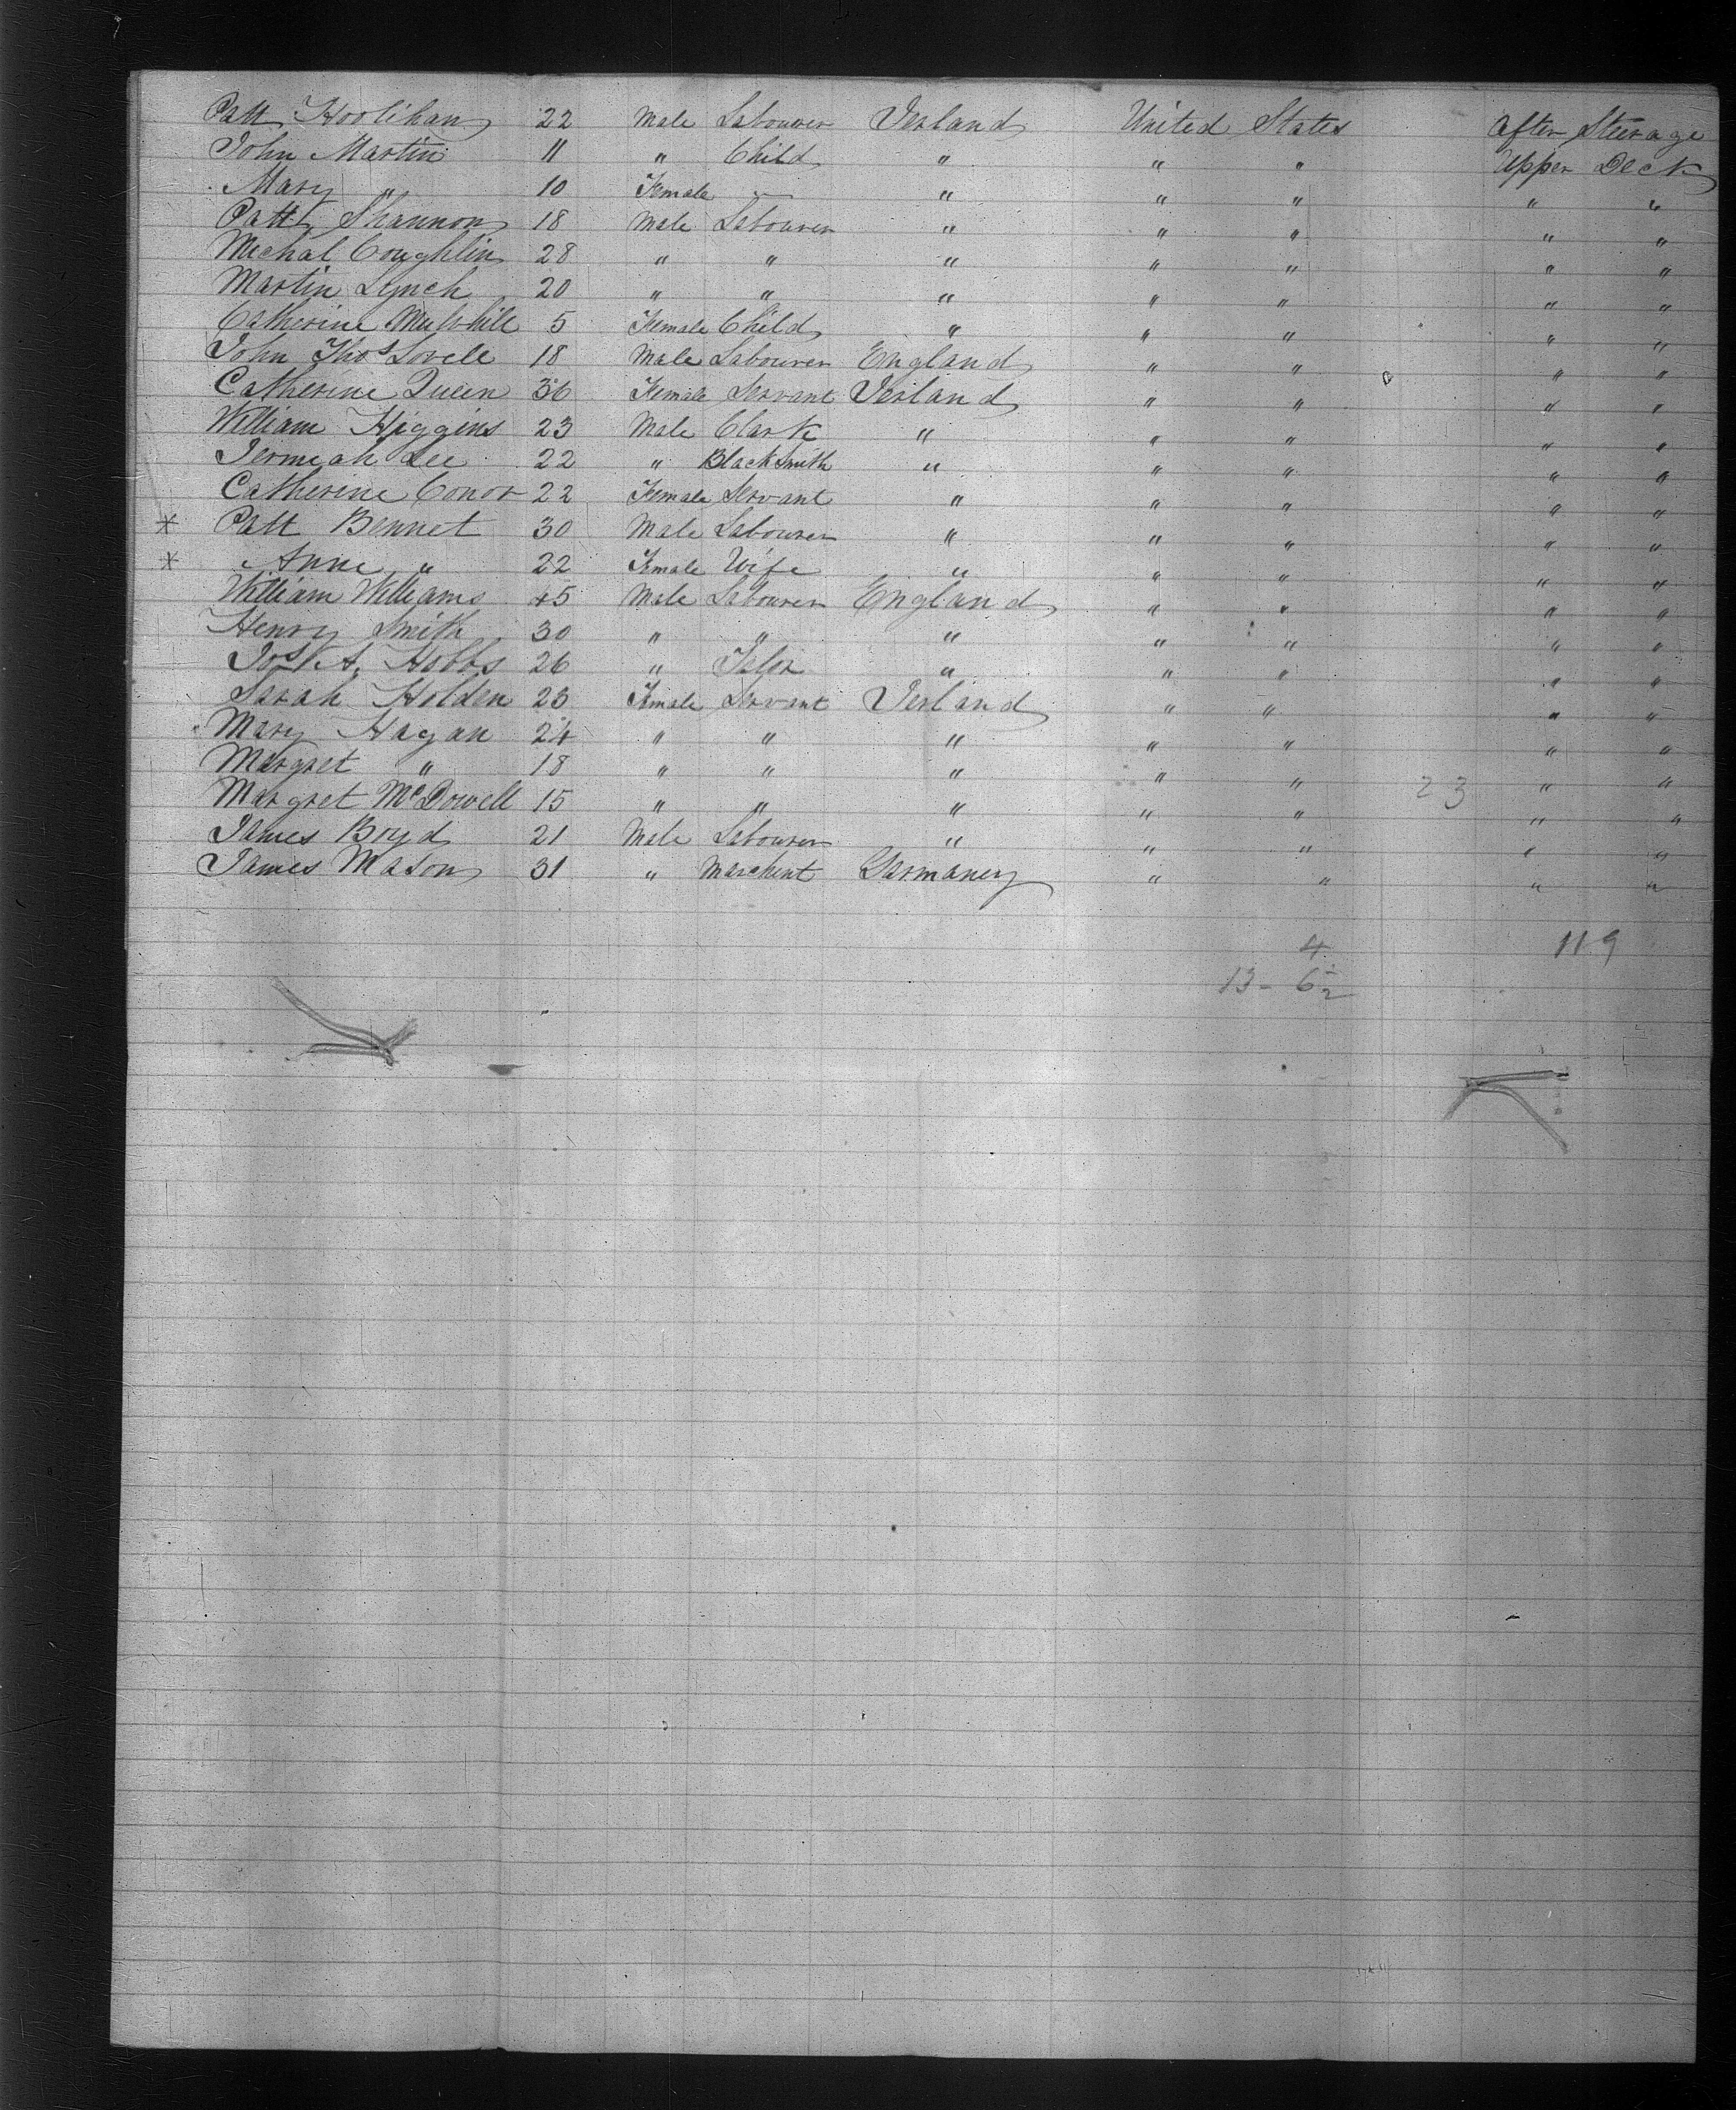 Patt Hoolihan 22 Male Labourer Ierland United States After Steerage
John Martin 11 " Child " " " Upper Deck
Mary " 10 Female " " " " " "
Patt Shannon 18 Male Labourer " " " " "
Michal Coughlin 28 " " " " " " "
Martin Lynch 20 " " " " " " "
Catherine 5 Female Child " " " " "
John Thos Lovell 18 Male Labourer England " " " "
Catherine Queen 36 Female Servant Ierland " " " "
William Higgins 23 Male Clark " " " " "
Jermiah Lee 22 " BlackSmith " " " " "
Catherine Conor 22 Female Servant " " " " "
* Patt Bennet 30 Male Labourer " " " " "
* Anne " 22 Female Wife " " " " "
William Williams 45 Male Labourer England " " " "
Henry Smith 30 " " " " " " "
Hobbs 26 " " " " " "
Sarah Holden 23 Female Servant Ierland " " " "
Mary Hagan 24 " " " " " " "
Margret " 18 " " " " " " "
Margret McDowell 15 " " " " " 23 " "
James Boyd 21 Male Labourer " " " " "
James Mason 31 " Marchent Garmaney " " " "
4 119
13 - 6½